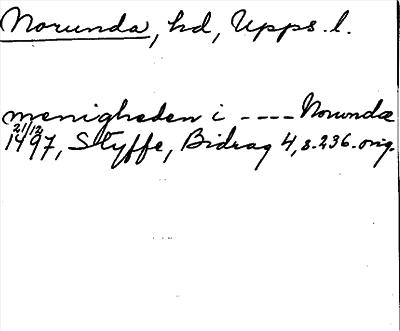 Norunda, hd, Upps. l.
menigheden i ---- Norundæ
21/12
1497, Styffe, Bidrag 4, s. 236. orig.